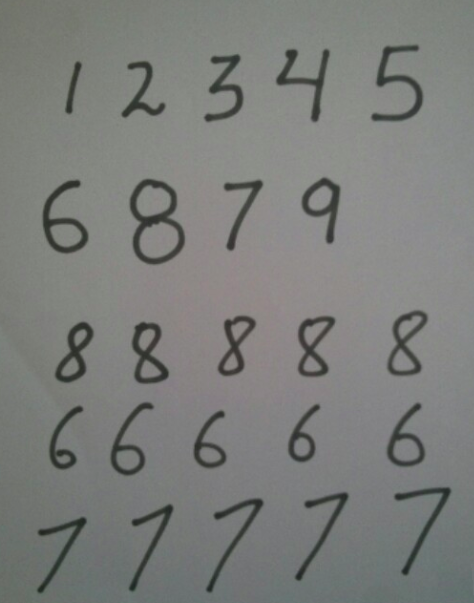 1 2 3 4 5
6 8 7 9
8 8 8 8 8
6 6 6 6 6
7 7 7 7 7